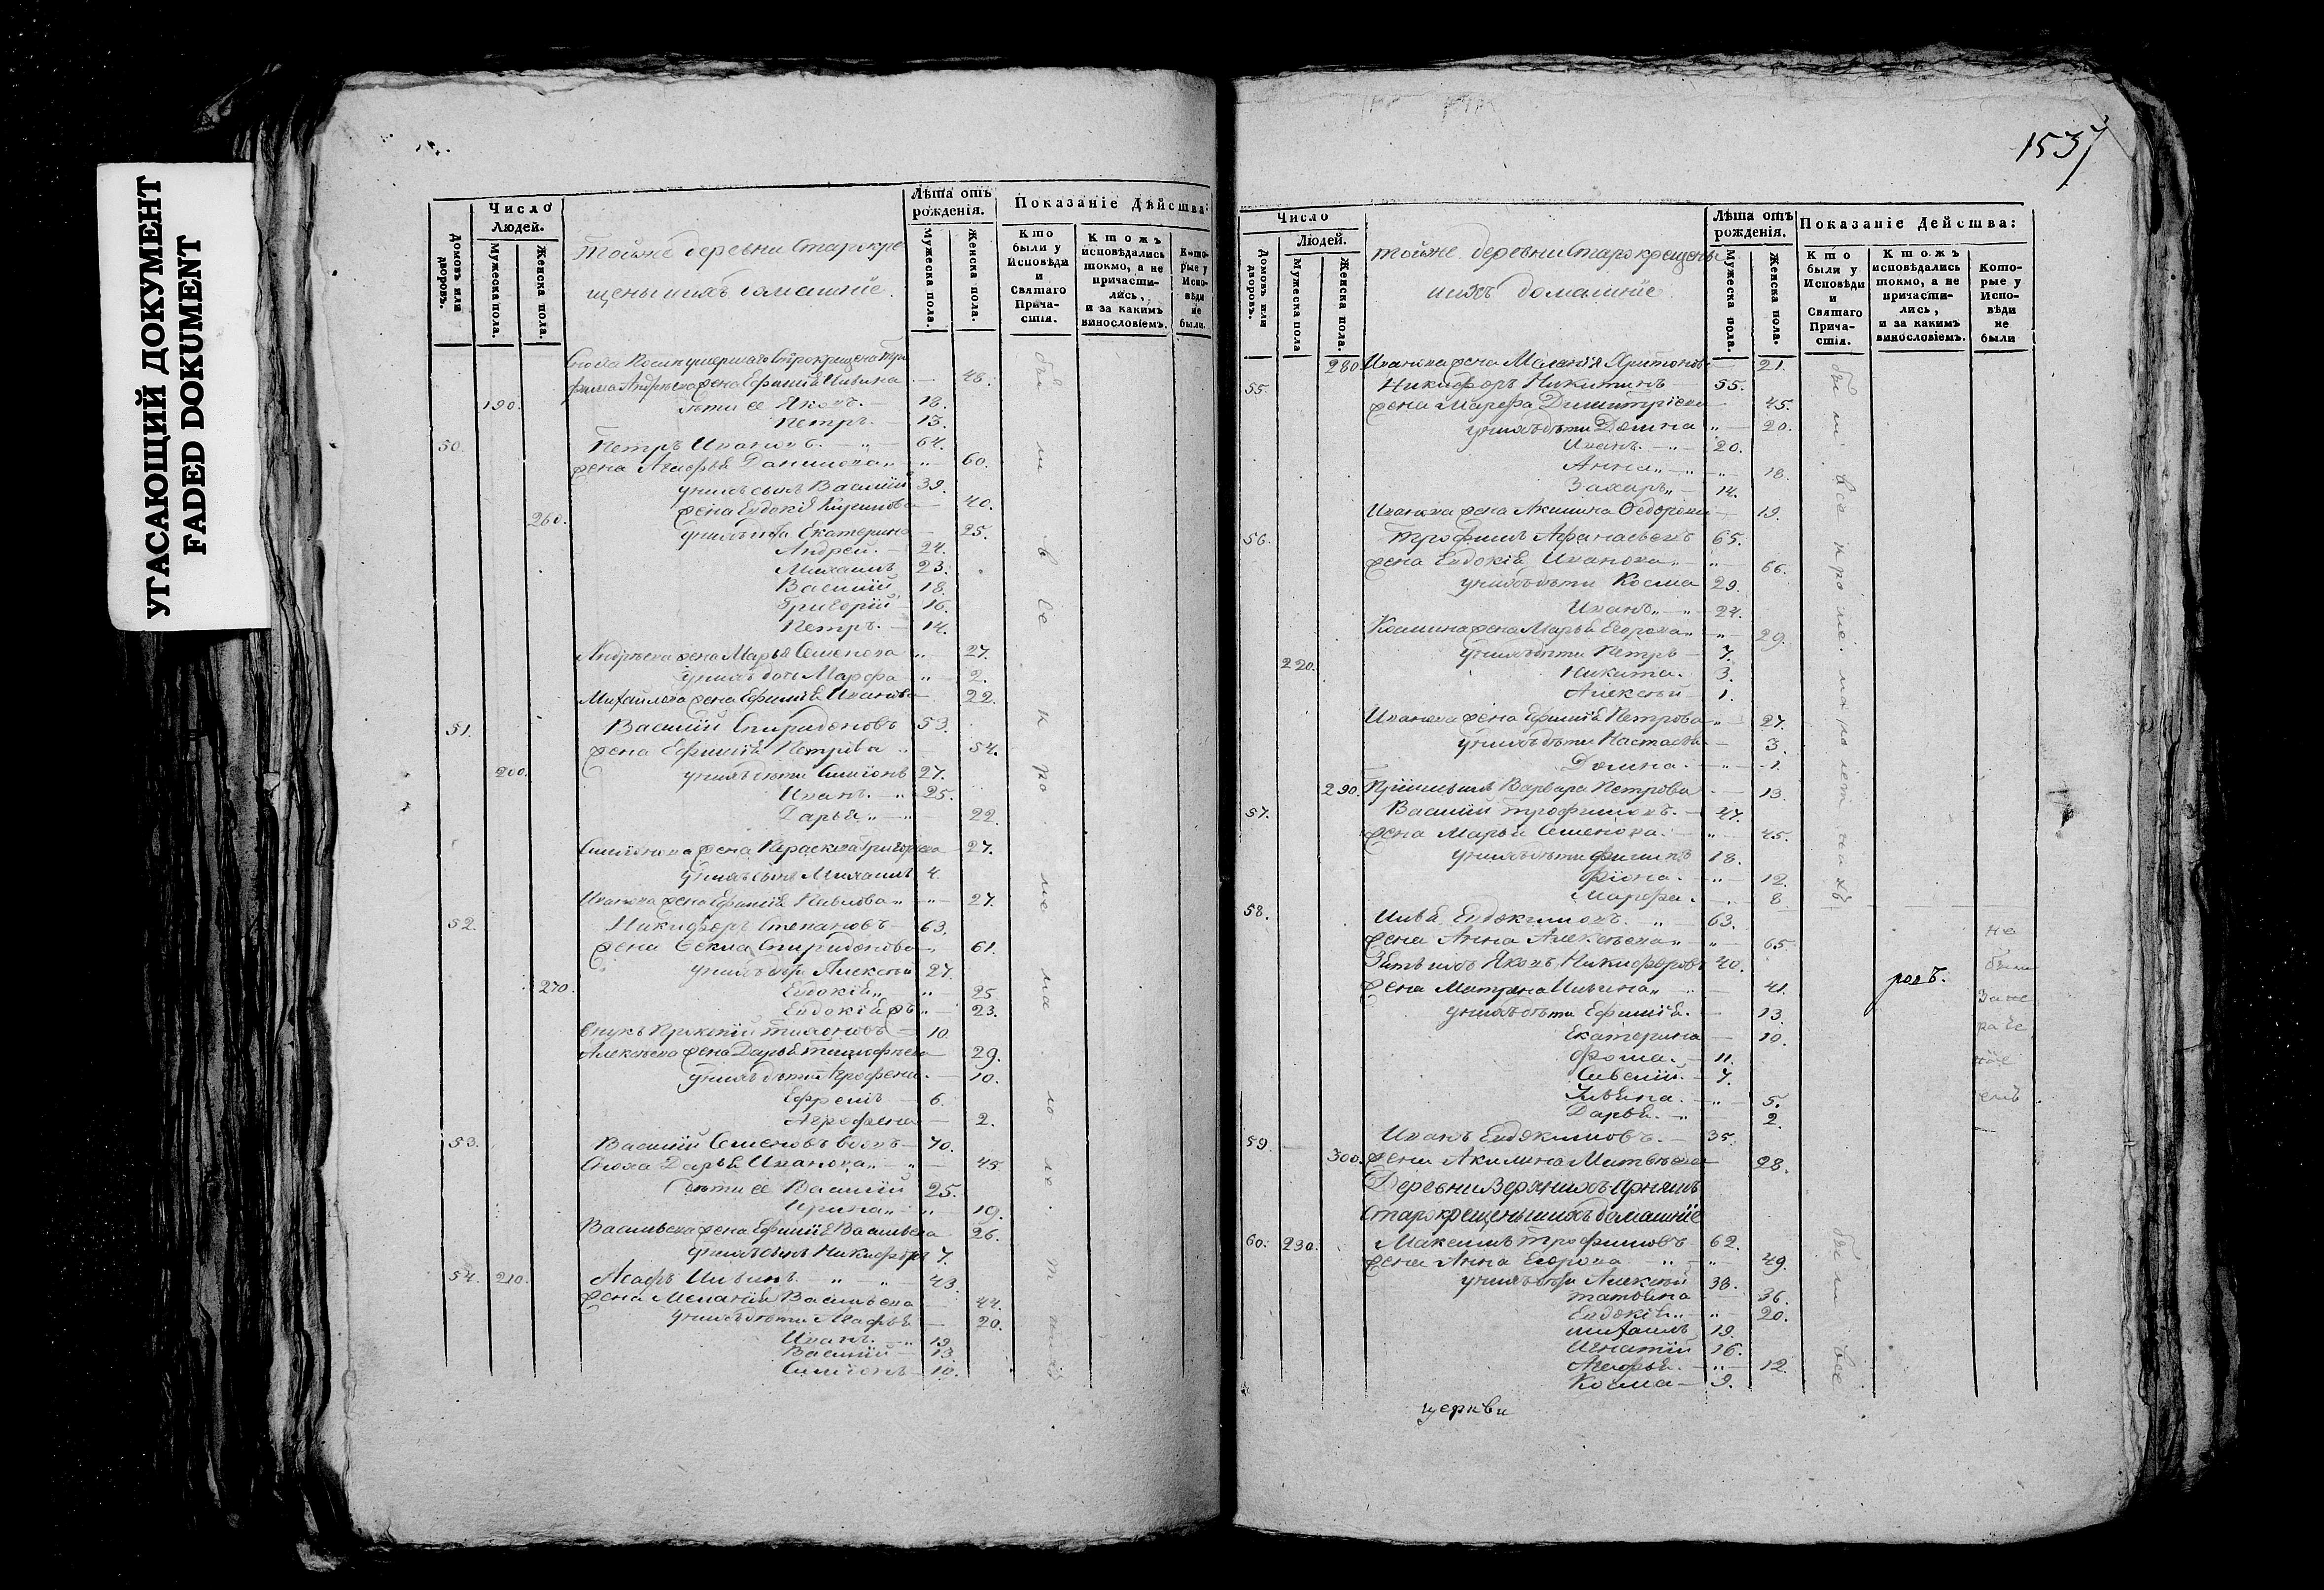 УГАСАЮЩИЙ ДОКУМЕНТ
FADED DOKUMENT
Число Людей.
Лѣта отъ рожденія.
Показаніе Дѣйства:
Домовъ или дворовъ.
Мужеска пола.
Женска пола.
тойже деревни Старокре
щены иихъ домашнїе
Мужеска пола.
Женска пола.
Кто были у Исповѣди и Святаго Причастія.
Ктожъ исповѣдались токмо, а не причастились, и за какимъ винословіемъ.
Которые у Исповѣди не были.
48.
190. дѣти ее Яковъ. 18.
Петръ. 13.
50. Петръ Ивановъ. 64.
жена Агафья Данилова 60.
унихъ сынъ Василій 39.
жена Евдокія 40.
260. унихъ дѣти Екатерина 25.
Андрей. 24.
Михаилъ 23.
Василій 18.
Григорій 16.
Петръ. 14.
Андрѣева жена Марья Семенова 27.
унихъ дочь Марфа 2.
Михайлова жена Ефимія Иванова 22.
51. Василій Спиридоновъ 53.
жена Ефимія Петрова 54.
200. унихъ дѣти Симіонъ 27.
Иванъ. 25.
Дарья 22.
Симіонова жена 27.
унихъ сынъ Михаилъ 4.
Иванова жена Ефимія Павлова 27.
52. Никифоръ Степановъ 63.
жена Фекла Спиридонова 61.
унихъ дѣти Алексѣй 27.
270. Евдокія 25
Евдокія 23.
10.
Алексѣева жена Дарья 29.
унихъ дѣти Агрофена 10.
Ефремъ 6.
Агрофена 2.
53. Василій Семеновъ 70.
Сноха Дарья Иванова 45
дѣти ее Василій 25.
Ирина 19.
Васильева жена Ефимія Васильева 26.
унихъ сынъ Никифоръ 7.
54. 210. Агафъ 43.
жена Меланія Васильева 44.
унихъ дѣти 20.
Иванъ. 19
Василій 13
Симіонъ 10.
были всѣ кроме малолетнихъ
1537
Число Людей.
Лѣта отъ рожденія.
Показаніе Действа:
Домовъ или дворовъ.
Мужеска пола
Женска пола.
тойже деревни Старокрещены
иихъ домашнїе
Мужеска пола.
Женска пола.
Кто были у Исповѣди и Святаго Причастія.
Ктожъ исповѣдались токмо, а не причастились, и за какимъ винословіемъ.
Которые у Исповѣди не были
280. Иванова жена Маланія 21.
55. Никифоръ Никитинъ 55.
жена Марфа Димитріева 45.
унихъ дѣти Домна 20.
Иванъ. 20.
Анна 18.
Захаръ 14.
Иванова жена Акилина Федорова 19.
56. Трофимъ Афанасьевъ 65.
жена Евдокія Иванова 66.
унихъ дѣти Косма 29.
Иванъ 24.
Космина жена Марья Егорова 29.
унихъ дѣти Петръ 7.
220. Никита. 3.
Алексѣй 1.
Иванова жена Ефимія Петрова 27.
унихъ дѣти Настасья 3.
Домна. 1.
290. Варвара Петрова 13.
57. Василій Трофимовъ. 47.
жена Марья Семенова. 45.
унихъ дѣти 18.
12.
Марфа. 8
58. Илья Евдокимовъ. 63.
жена Анна Алексѣева 65.
Зять ихъ Яковъ Никифоровъ 40.
жена Матрена Ильина 41.
унихъ дѣти Ефимія. 13.
Екатерина 10.
Фома. 11.
7.
5.
Дарья. 2.
59. Иванъ Евдокимовъ. 35.
300. жена Акилина 28.
Деревни Верхнихъ
Старокрещены иихъ домашнїе
60. 230. Максимъ Трофимовъ 62.
жена Анна Егорова 49.
унихъ дѣти Алексѣй 38.
36.
Евдокія 20.
Михаилъ 19.
Игнатій 16.
Агафья. 12.
Косма 9.
были все кроме малолетнахъ
не были за не ра
родъ.
были все
церкви